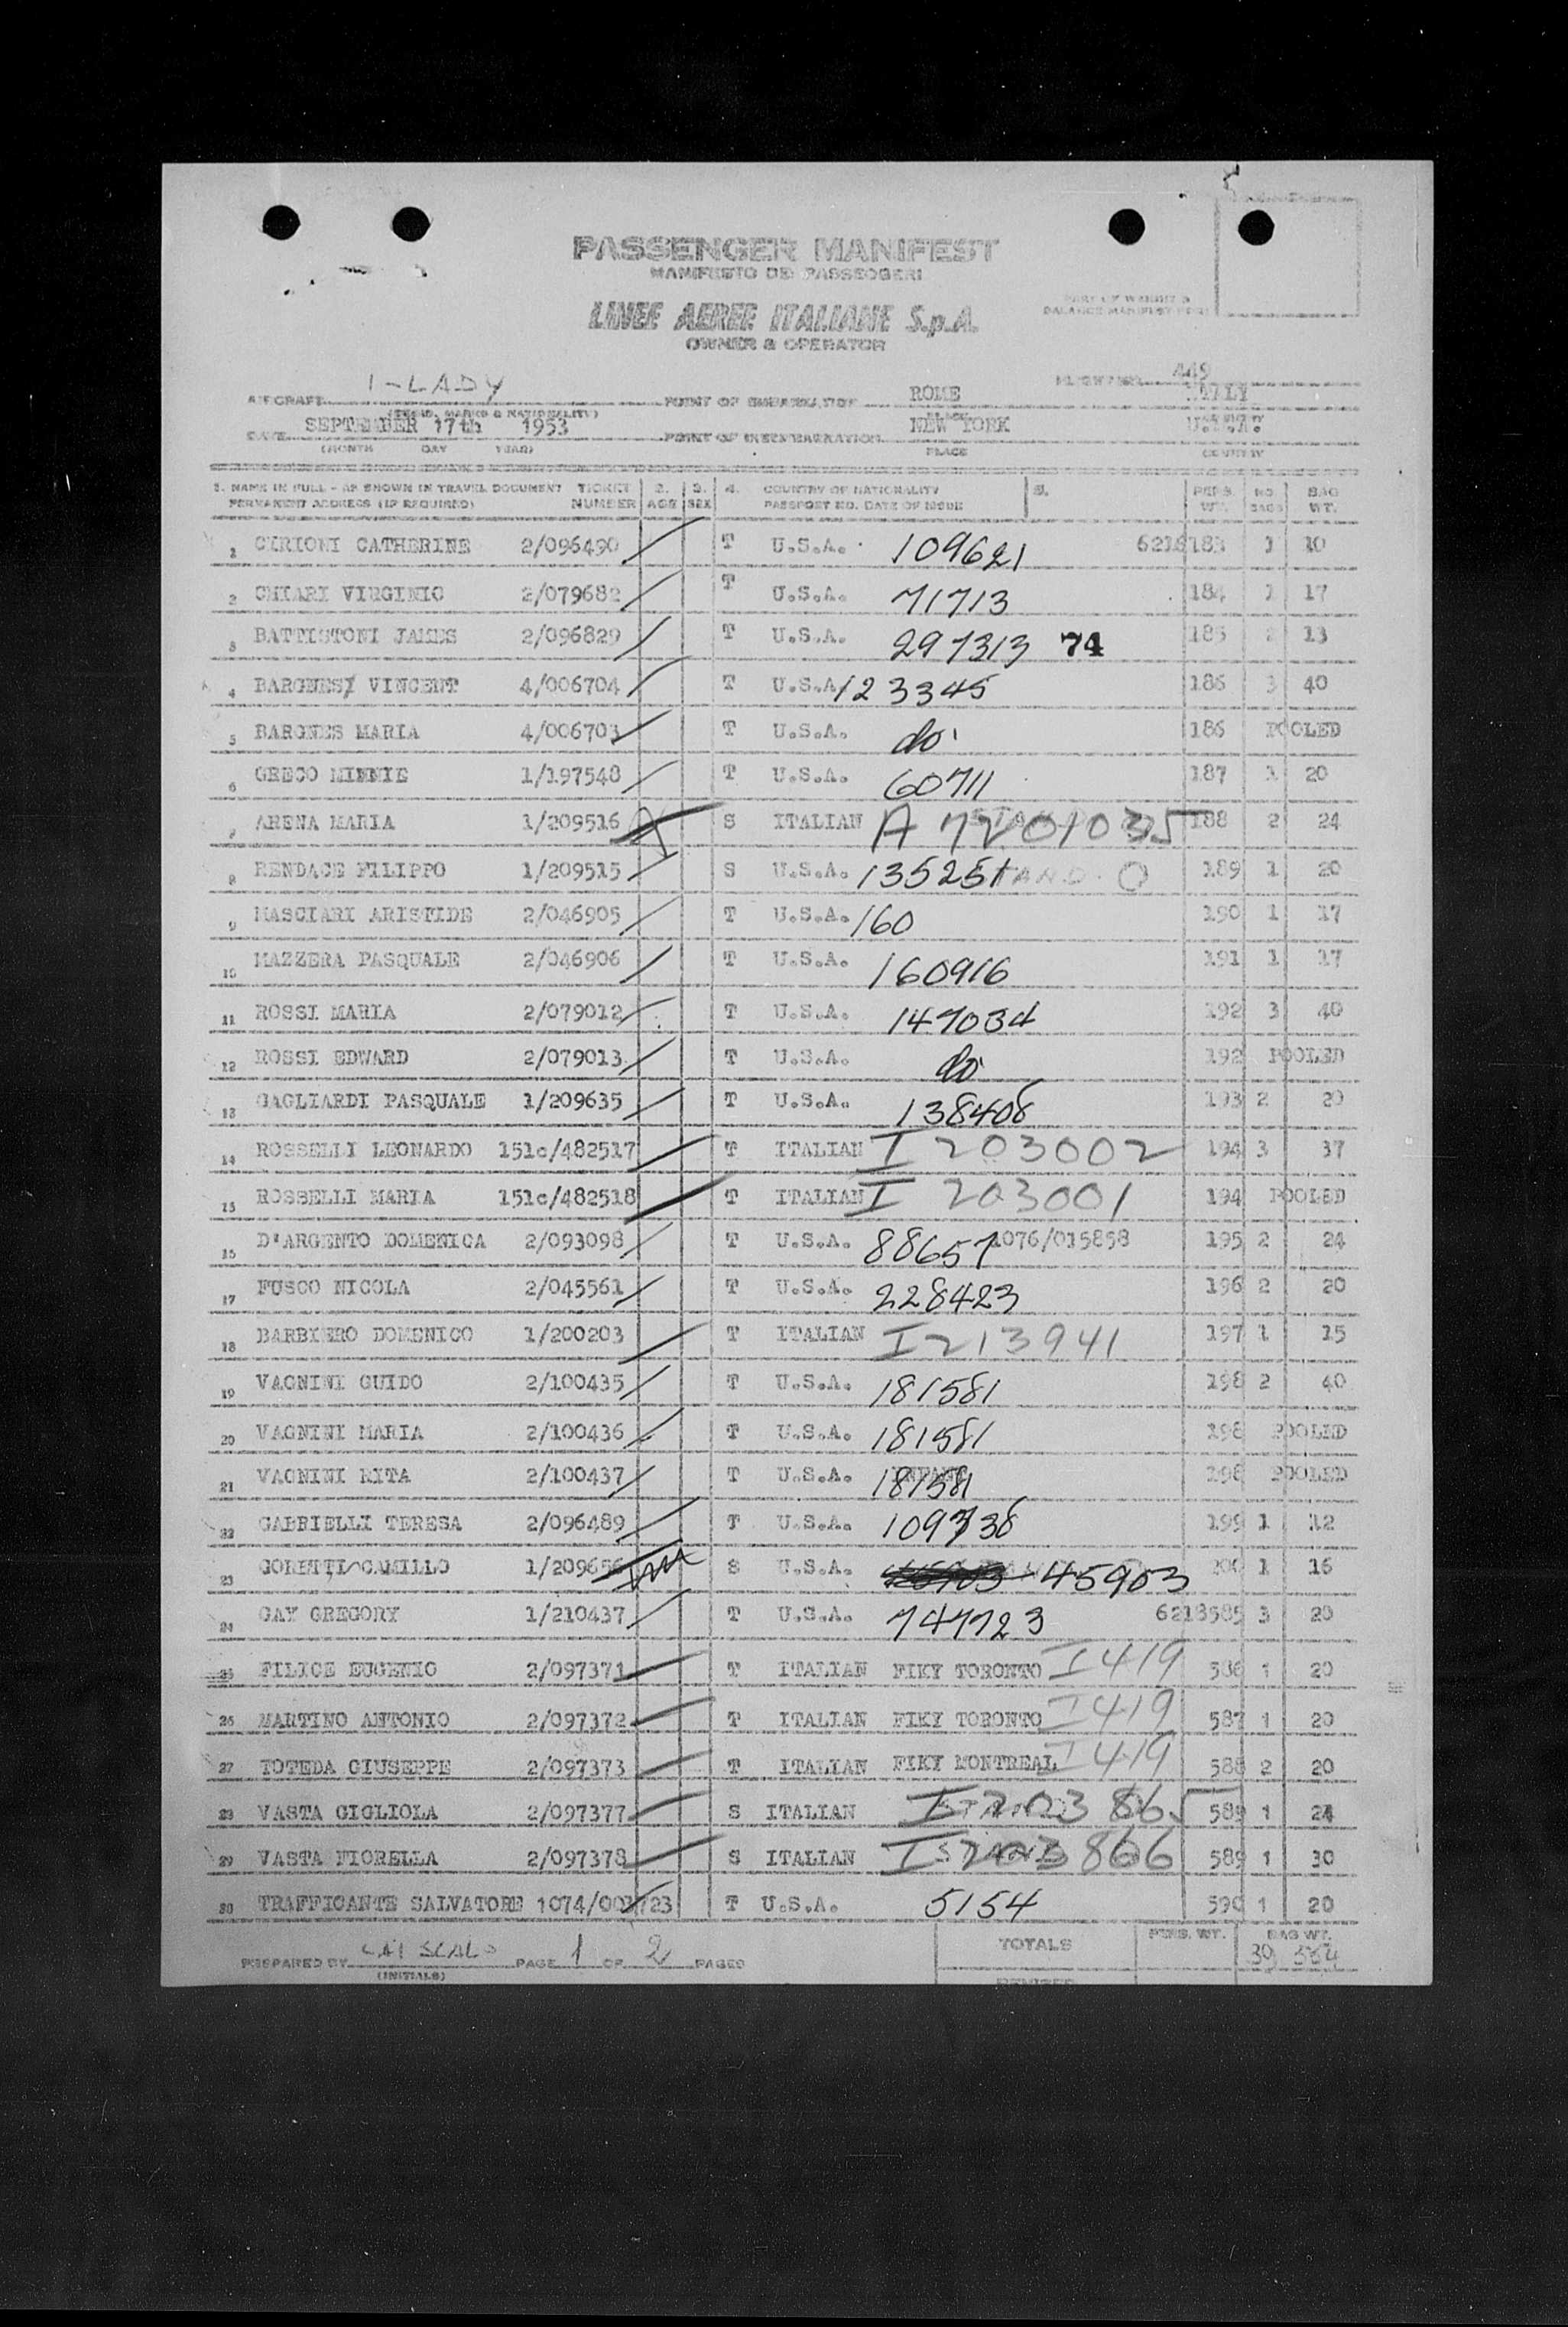 PASSENGER MANIFEST
MANIFESTO DEI PASSEGGERI
LINEE AEREE ITALIANE S.p.A.
OWNER & OPERATOR
PART OF WEIGHT &
BALANCE MANIFEST
449
AIRCRAFT I-LADY POINT OF EMBARKATION ROME ITALY
(REGID. MARKS & NATIONALITY) PLACE
DATE SEPTEMBER 17th 1953 POINT OF DISEMBARKATION NEW YORK U.S.A.
(MONTH DAY YEAR) PLACE COUNTRY
1. NAME IN FULL - AS SHOWN IN TRAVEL DOCUMENT TICKET 2. 3. 4. COUNTRY OF NATIONALITY 5. PERS. NO BAG
PERMANENT ADDRESS (IF REQUIRED) NUMBER AGE SEX PASSPORT NO. DATE OF ISSUE WT. BAGS WT.
1 CURIONI CATHERINE 2/096490 T U.S.A. 109621 6216183 1 10
2 CHIARI VIRGINIO 2/079682 T U.S.A. 71713 184 1 17
3 BATTISTONI JAMES 2/096829 T U.S.A. 297313 74 185 2 13
4 BARGNESI VINCENT 4/006704 T U.S.A 123345 186 3 40
5 BARGNES MARIA 4/006703 T U.S.A. do 186 POOLED
6 GRECO MINNIE 1/197548 T U.S.A. 60711 187 1 20
7 ARENA MARIA 1/209516 S ITALIAN A 7201035 188 2 24
8 RENDACE FILIPPO 1/209515 S U.S.A. 135251 189 1 20
9 MASCIARI ARISTIDE 2/046905 T U.S.A. 160 190 1 17
10 MAZZERA PASQUALE 2/046906 T U.S.A. 160916 191 1 17
11 ROSSI MARIA 2/079012 T U.S.A. 147034 192 3 40
12 ROSSI EDWARD 2/079013 T U.S.A. do 192 POOLED
13 GAGLIARDI PASQUALE 1/209635 T U.S.A. 138408 193 2 20
14 ROSSELLI LEONARDO 151c/482517 T ITALIAN I 203002 194 3 37
15 ROSSELLI MARIA 151c/482518 T ITALIAN I 203001 194 POOLED
16 D'ARGENTO DOMENICA 2/093098 T U.S.A. 88657 1076/015858 195 2 24
17 FUSCO NICOLA 2/045561 T U.S.A. 228423 196 2 20
18 BARBIERO DOMENICO 1/200203 T ITALIAN I 213941 197 1 15
19 VAGNINI GUIDO 2/100435 T U.S.A. 181581 198 2 40
20 VAGNINI MARIA 2/100436 T U.S.A. 181581 198 POOLED
21 VAGNINI RITA 2/100437 T U.S.A. INFANT 181581 198 POOLED
22 GABBIELLI TERESA 2/096489 T U.S.A. 109738 199 1 12
23 GORETTI CAMILLO 1/209656 S U.S.A. 45903 200 1 16
24 GAY GREGORY 1/210437 T U.S.A. 747723 6218585 3 20
25 FILICE EUGENIO 2/097371 T ITALIAN FIKY TORONTO I 419 586 1 20
26 MARTINO ANTONIO 2/097372 T ITALIAN FIKY TORONTO I 419 587 1 20
27 TOTEDA GIUSEPPE 2/097373 T ITALIAN FIKY MONTREAL I 419 588 2 20
28 VASTA GIGLIOLA 2/097377 S ITALIAN I 203865 589 1 24
29 VASTA FIORELLA 2/097378 S ITALIAN I 203866 589 1 30
30 TRAFFICANTE SALVATORE 1074/003723 T U.S.A. 5154 590 1 20
PREPARED BY LAI SCALO PAGE 1 OF 2 PAGES TOTALS PERS. WT. BAG WT.
(INITIALS) 39 584